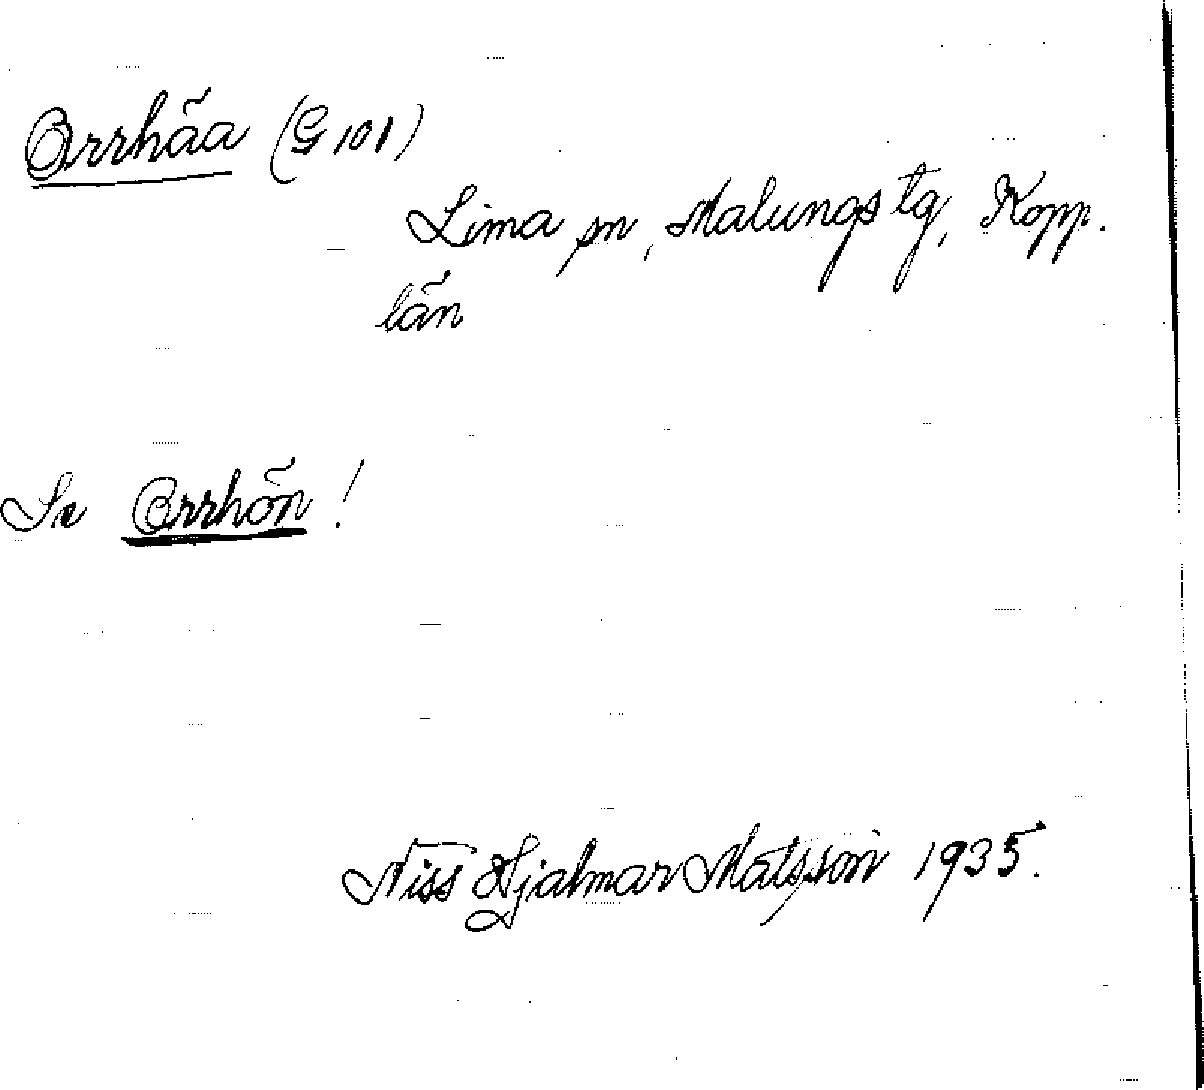 Orrhåa (G 101)
Lima sn, Malungs tg, Kopp.
län
Se Orrhön!
Niss Hjalmar Matsson 1935.